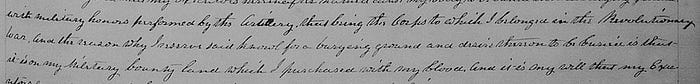 with military honors performed by the Artillery, that being the Corps to which I belonged in the Revolutionary
War, and the reason why I reserve said knowl for a burying ground and desire thereon to be buried is that
it is on my Military bounty land which I purchased with my blood, And it is my will that my Exe